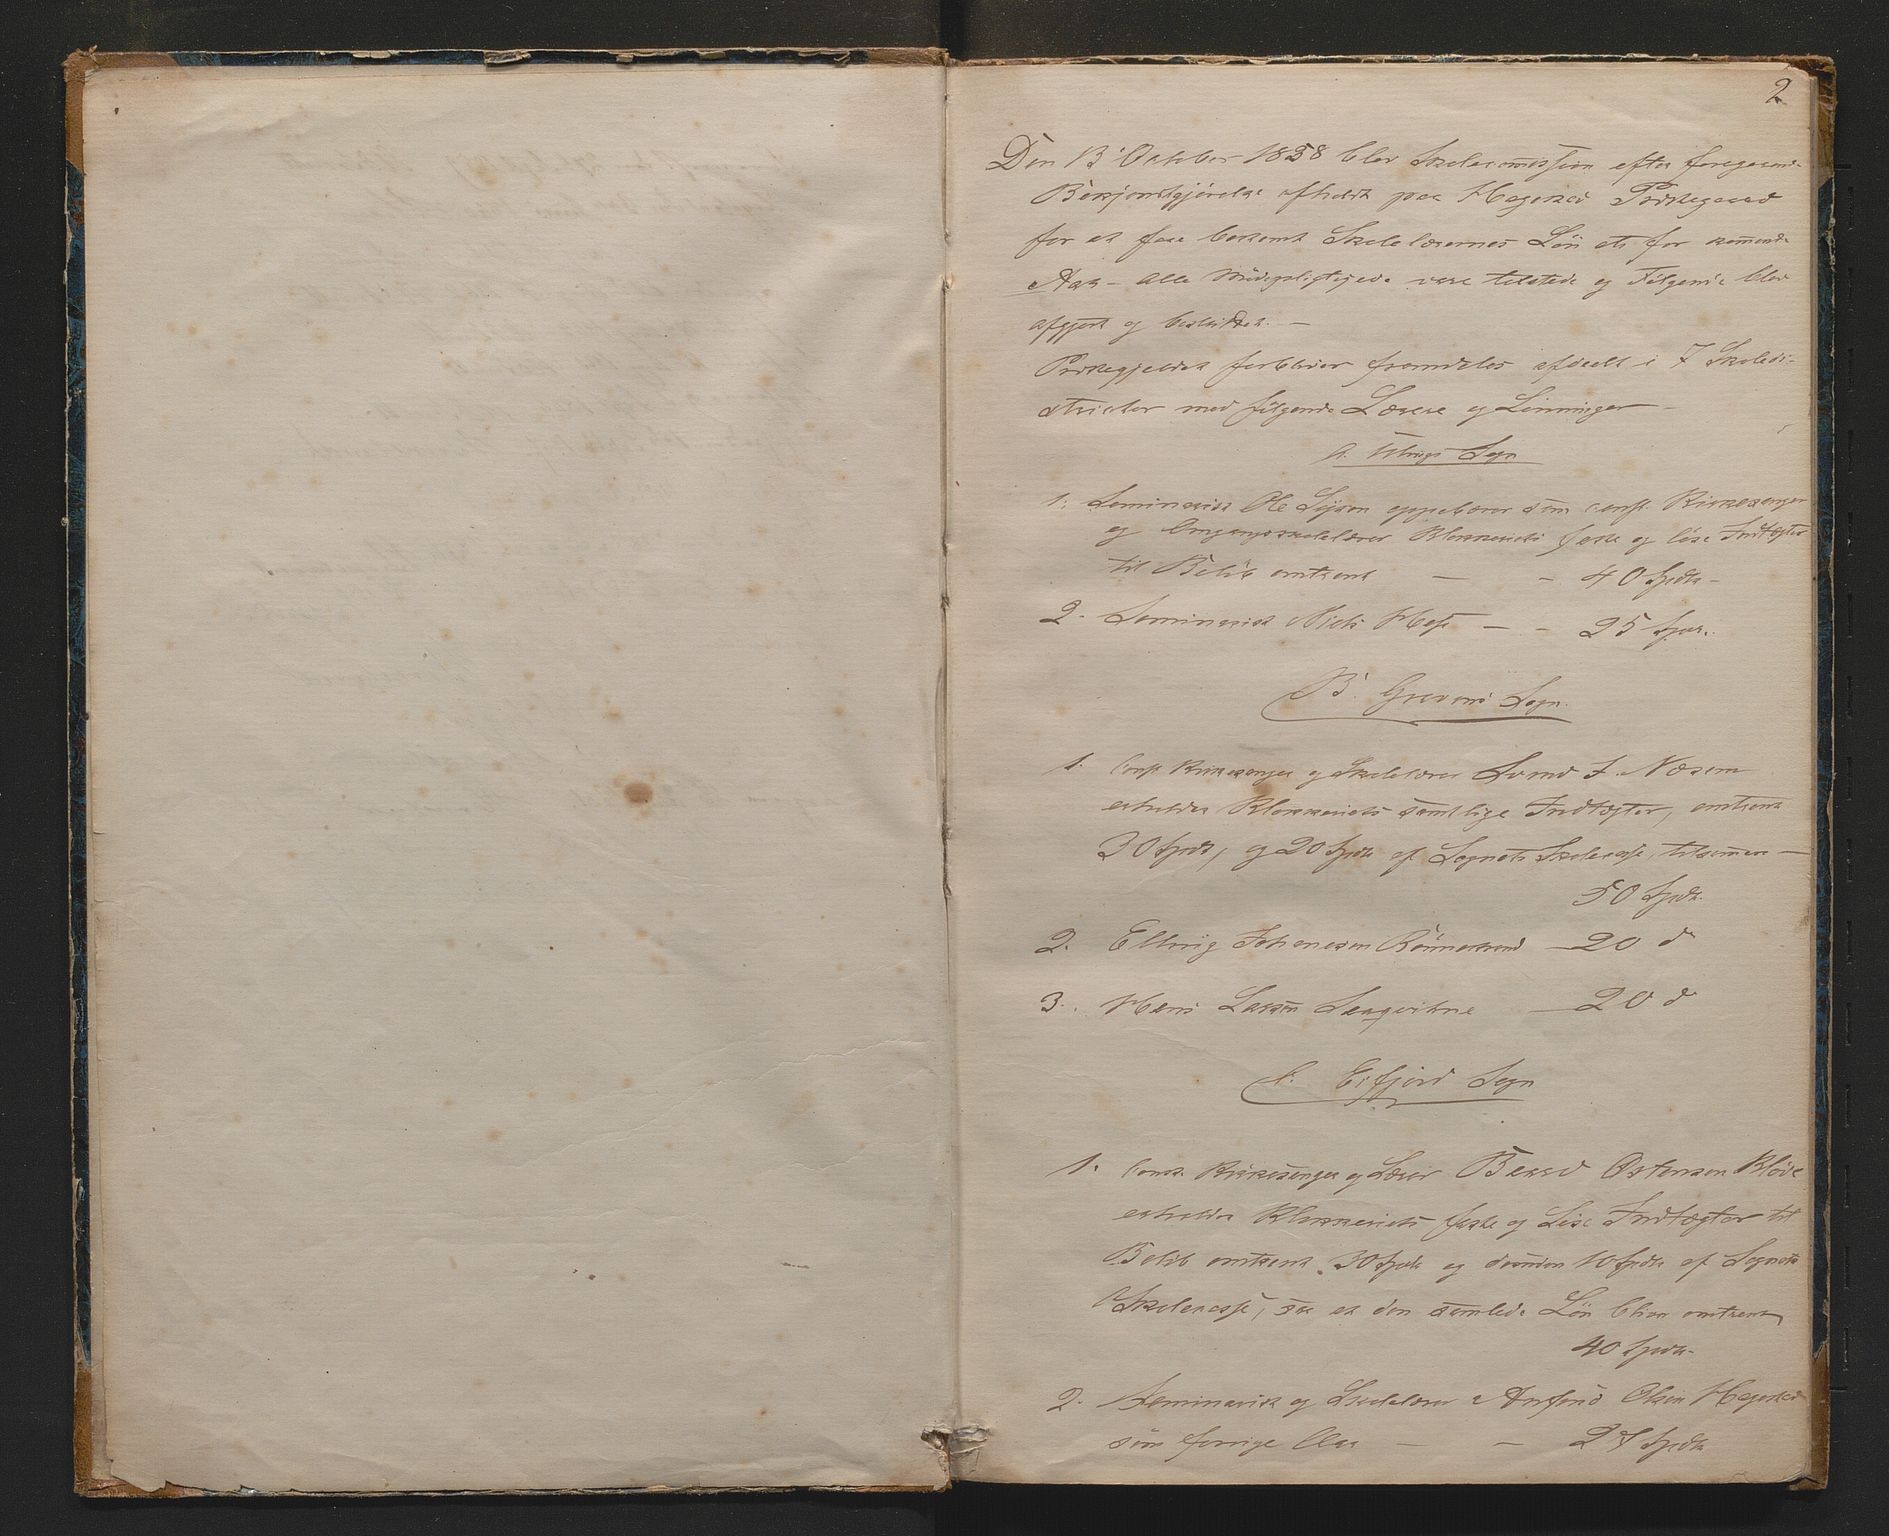 2
Den 13' October 1858 blev Skolecommission efter foregaaende
Bekjendtgjørelse afholdt paa Hagestad Præstegaard
for at faae bestemt Skolelærernes Løn etc for kommende
Aar – Alle Mødepligtige vare tilstede og Følgende blev
afgjort og besluttet. –
Præstegjeldet forbliver fremdeles afdeelt i 7 Skoledi-
stricter med følgende Lærere og Lønninger –
A. Ulvigs Sogn
1. Seminarist Ole oppebærer som const. Kirkesanger
og Omgangsskolelærer Klokkeriets faste og løse Indtægter
til Beløb omtrent – – 40 Spdlr –
2. Seminarist Niels – – 25 Spdlr.
B. Gravens Sogn.
1. Const Kirkesanger og Skolelærer Svend J. Næsem
erholder Klokkeriets samtlige Indtægter, omtrent
30 Spdlr, og 20 Spdlr af Sognets Skolecasse, tilsammen –
50 Spdlr.
2. Ellvig Johannesen Rønnestrand – 20 d
3. Hans Larsen Seaqvitne – 20 d
C. Eifjord Sogn
1. Const. Kirkesanger og Lærer Østensen
erholder Klokkeriets faste og Løse Indtægter til
Beløb omtrent 30 Spdlr og desuden 10 Spdlr af Sognets
Skolecasse, saa at den samlede Løn bliver omtrent
40 Spdlr.
2. Seminarist og Skolelærer Arnfind Olsen Hagestad
som forrige Aar – – 27 Spdlr